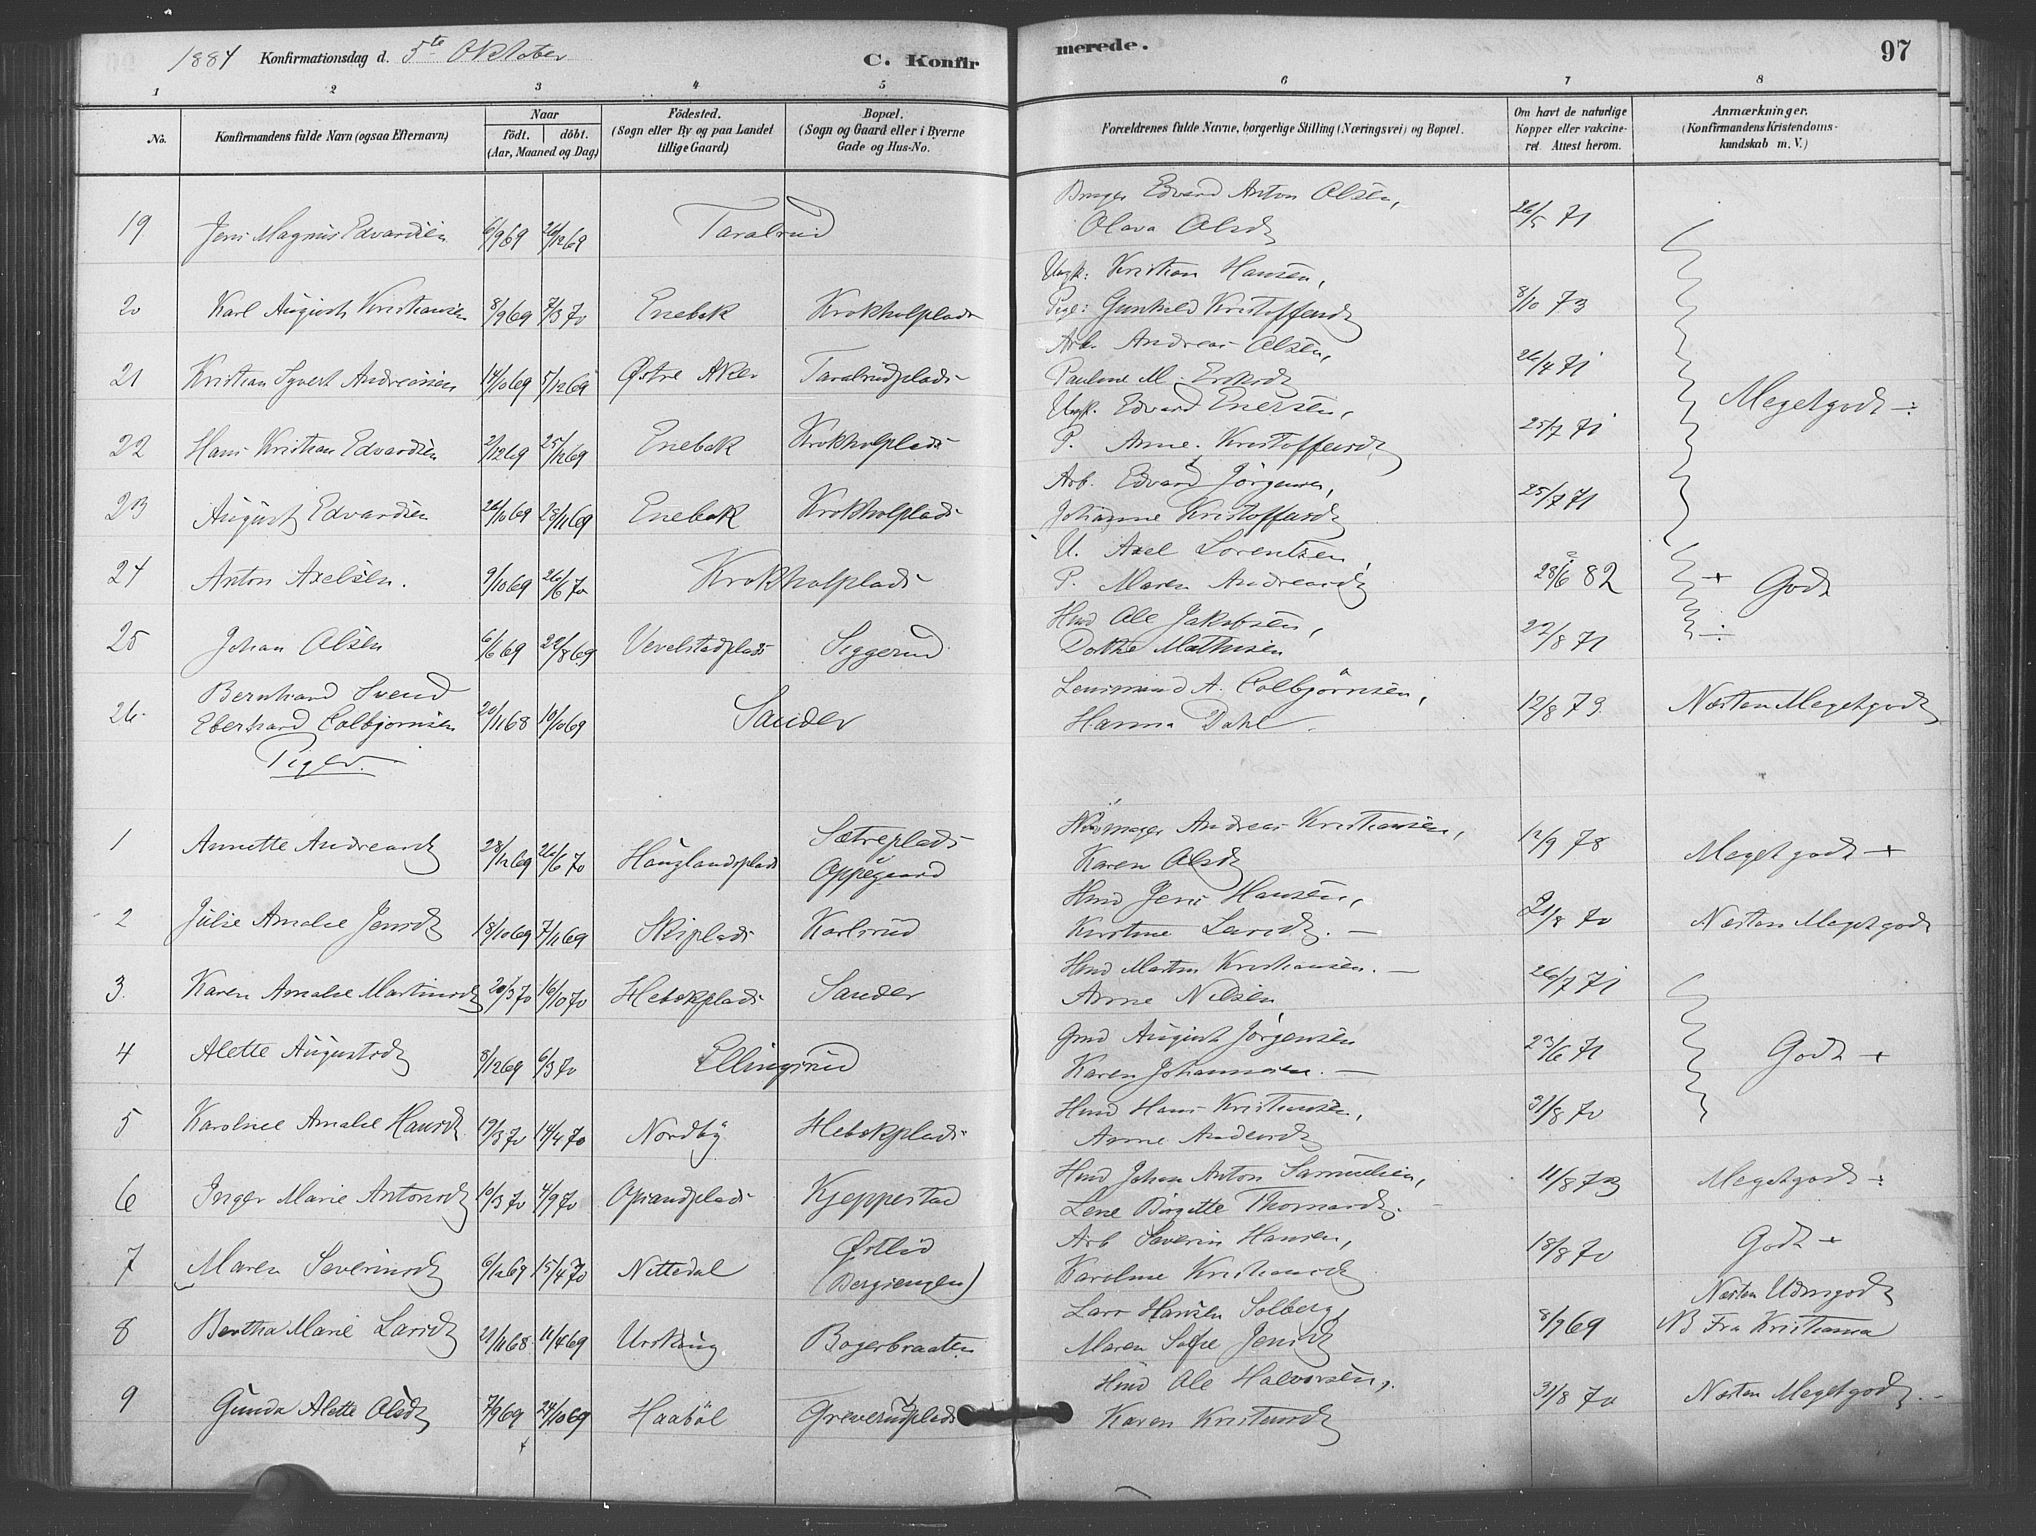 1884 Konfirmationsdag d. 5te Oktober
C. Konfirmerede.
97
1 2 3 4 5 6 7 8
No.
Konfirmandens fulde Navn (ogsaa Efternavn)
Naar
födt. döbt.
(Aar, Maaned og Dag)
Födested.
(Sogn eller By og paa Landet
tillige Gaard)
Bopæl.
(Sogn og Gaard eller i Byerne
Gade og Hus-No.
Forældrenes fulde Navne, borgerlige Stilling (Næringsvei) og Bopæl.
Om havt de naturlige
Kopper eller vakcine-
ret. Attest herom.
Anmærkninger.
(Konfirmandens Kristendoms-
kundskab m. V.)
19 Jens Magnus Edvardsen 6/9 69 26/12 69 Taralrud
Bruger Edvard Anton Olsen,
Olava Olsd 26/5 71
20 Karl August Kristiansen 8/9 69 7/3 70 Enebak Krokholplads
Ungk: Kristian Hansen,
Pige: Gunhild Kristoffersd 8/10 73
21 Kristian Syvert Andreassen 14/10 69 5/12 69 Østre Aker Taralrudplads
Arb. Andreas Olsen,
Pauline M. Eriksd 26/4 71
22 Hans Kristian Edvardsen 2/12 69 25/12 69 Enebak Krokholplads
Ungk. Edvard Enersen,
P. Anne Kristoffersd 25/7 71
Megetgodt ÷
23 August Edvardsen 24/10 69 28/11 69 Enebak Krokholplads
Arb. Edvard Jörgensen,
Johanne Kristoffersd 25/7 71
24 Anton Axelsen. 9/10 69 26/6 70 Krokholplads
U. Axel Lorentsen,
P. Maren Andreasd 28/6 82 + Godt
25 Johan Olsen 6/6 69 22/8 69 Vevelstadplads Siggerud
Hmd Ole Jakobsen,
Dothe Mathisen 22/8 71 ÷
26 Bernhard Svend
Eberhard Colbjørnsen 20/11 68 10/10 69 Sander
Lensmand A. Colbjørnsen,
Hanna Dahl. 12/8 79 Næsten Megetgodt
Piger.
1 Annette Andreasd 28/12 69 26/6 70 Hauglandsplads Sætreplads
Oppegaard
Andreas Kristiansen,
Karen Olsd 12/9 78 Megetgodt +
2 Julie Amalie Jensd 18/10 69 7/11 69 Skiplads Karlsrud
Hmd Jens Hansen,
Kirstine Larsd. 21/8 70 Næsten Megetgodt
3. Karen Amalie Martinsd 20/3 70 16/10 70 Hebekplads Sander
Hmd Martin Kristiansen.
Anne Nilsen 26/7 71
4 Alette Augustsd 8/12 69 6/3 70 Ellingsrud
Gmd August Jørgensen
Karen Johannesen. 23/6 71 Godt +
5 Karoline Amalie Hansd 19/3 70 14/4 70 Nordby Hebekplads
Hmd Hans Kristiansen,
Anne Andersd 31/8 70
6 Inger Marie Antonsd 16/3 70 4/9 70 Opsandplads Kjeppestad
Hmd Johan Anton Samuelsen,
Lene Birgitte Thomasd. 11/8 73 Megetgodt ÷
7 Maren Severinsd 6/12 69 15/4 70 Nittedal Østlid
(Bergsengen)
Arb Severin Hansen,
Karoline Kristiansd 18/8 70 Godt +
8 Bertha Marie Larsd 21/11 68 11/4 69 Urskoug Bøgerbraaten
Lars Hansen Solberg,
Maren Sofie Jensd 8/9 69 Næsten Udmgodt
NB Fra Kristiania
9 Gunda Alette Olsd 7/9 69 24/10 69 Haabøl Greverudplads
Hmd Ole Halvorsen,
Karen Kristensd 31/8 70 Næsten Megetgodt